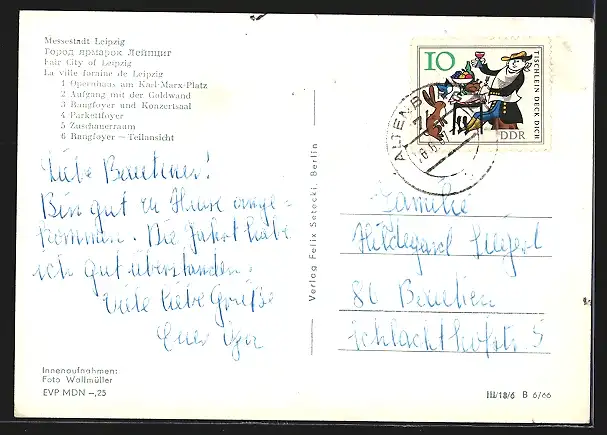 Messestadt Leipzig
Город ярмарок Лейпциг
Fair City of Leipzig
La ville foraine de Leipzig
1 Opernhaus am Karl-Marx-Platz
2 Aufgang mit der Goldwand
3 Rangfoyer und Konzertsaal
4 Parkettfoyer
5 Zuschauerraum
6 Rangfoyer – Teilansicht
Liebe Bautzner!
Bin gut zu Hause ange-
kommen. Die Fahrt habe
ich gut überstanden.
Viele liebe Grüße
Euer
Innenaufnahmen:
Foto Wallmüller
EVP MDN –,25
Verlag Felix Setecki, Berlin
10
TISCHLEIN DECK DICH
DDR
ALTENB
Familie
Hildegard
86 Bautzen
Schlachthofstr. 5
III/18/6 B 6/66